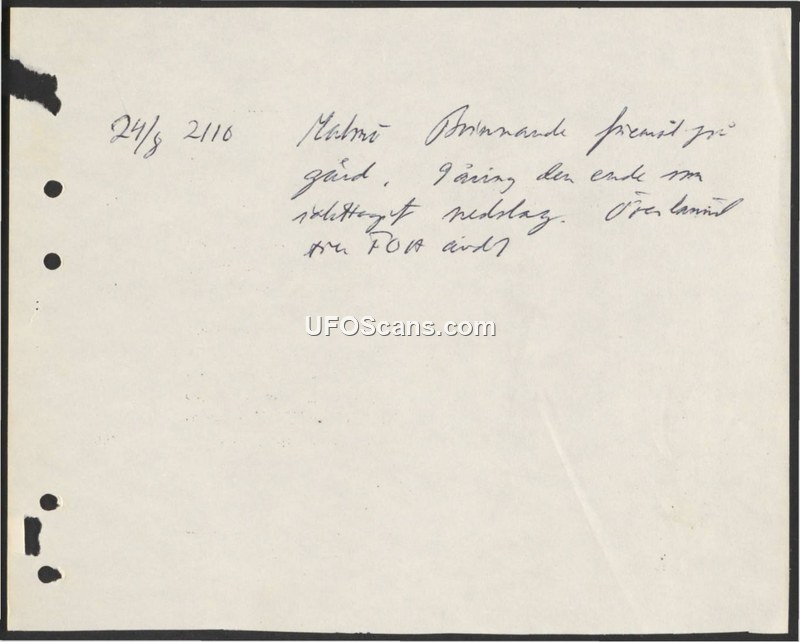 24/8 2110 Malmö Brinnande föremål på
gård. 9 åring den ende som
iakttagit nedslag. Överlämnat
UFOScans.com
FOA